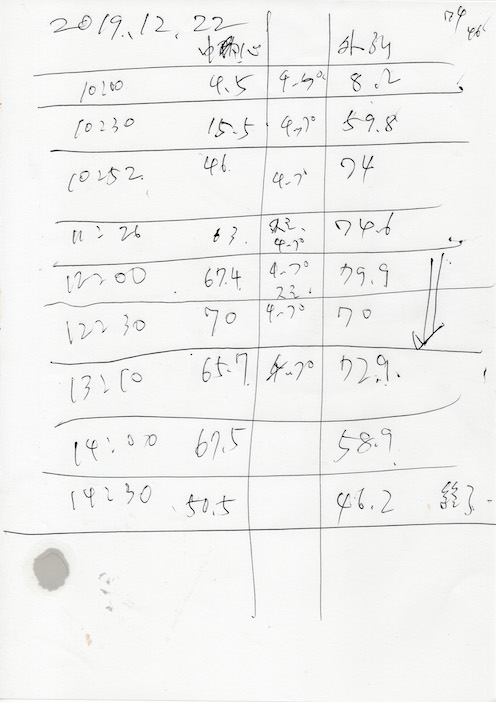 2019.12.22
74
46
中心 外的
10:00 4.5 4-プ 8.2
10:30 15.5 4-プ 59.8
10:52 46. 4-プ 74
11:26 63. 4-プ 74.6
12:00 67.4 4-プ 79.9
12:30 70 4-プ 70
13:10 65.7 4-プ 72.9.
14:00 67.5 58.9
14:30 50.5 46.2 終了